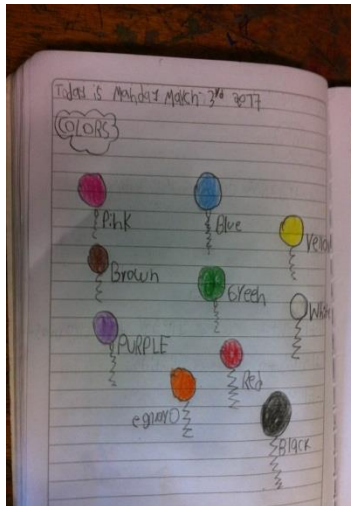 Today is Monday March 3th 2017
COLORS
Pink
Blue
Yellow
Brown
Green
White
PURPLE
Red
egnarO
Black